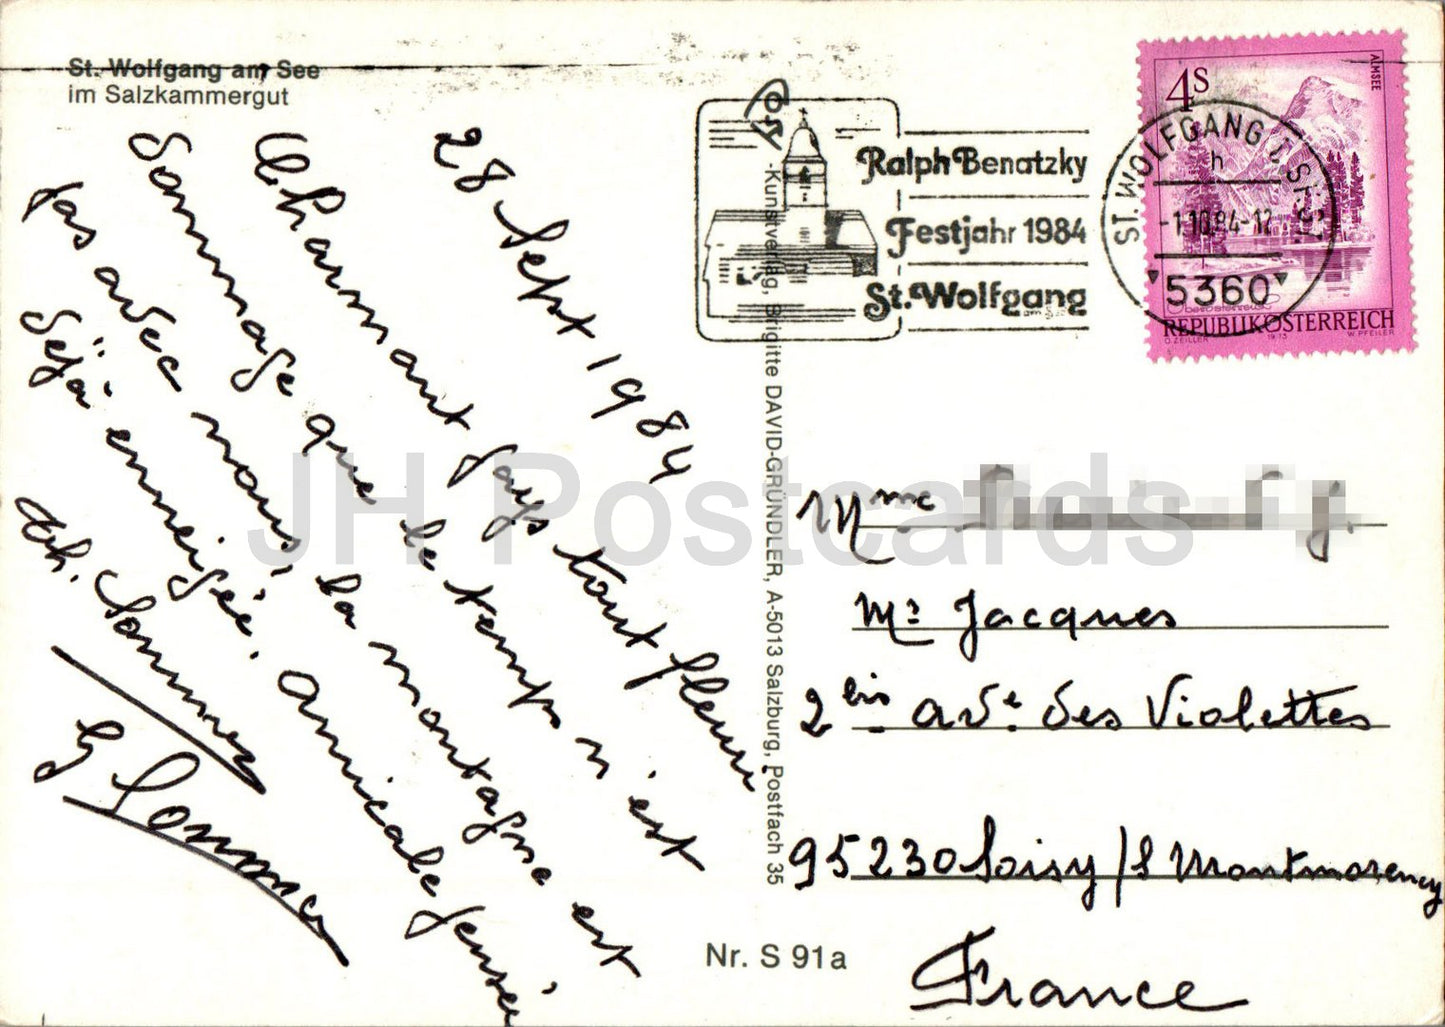 St. Wolfgang am See
im Salzkammergut
28 Sept 1984
Charmant pays tout fleuri
Dommage que le temps n'est
pas avec nous, la montagne est
déjà enneigée. Amicale pensée
Ralph Benatzky
Festjahr 1984
St. Wolfgang
4S
ALMSEE
ST. WOLFGANG
h
-1.10.84-12
5360
REPUBLIK ÖSTERREICH
O ZEILLER 1973 W. PFEILER
-Kunstverlag, Brigitte DAVID-GRÜNDLER, A-5013 Salzburg, Postfach 35
Nr. S 91a
Mme
Mr Jacques
2 bis avde des Violettes
95230 Soisy /s Montmorency
France
JH Postcards